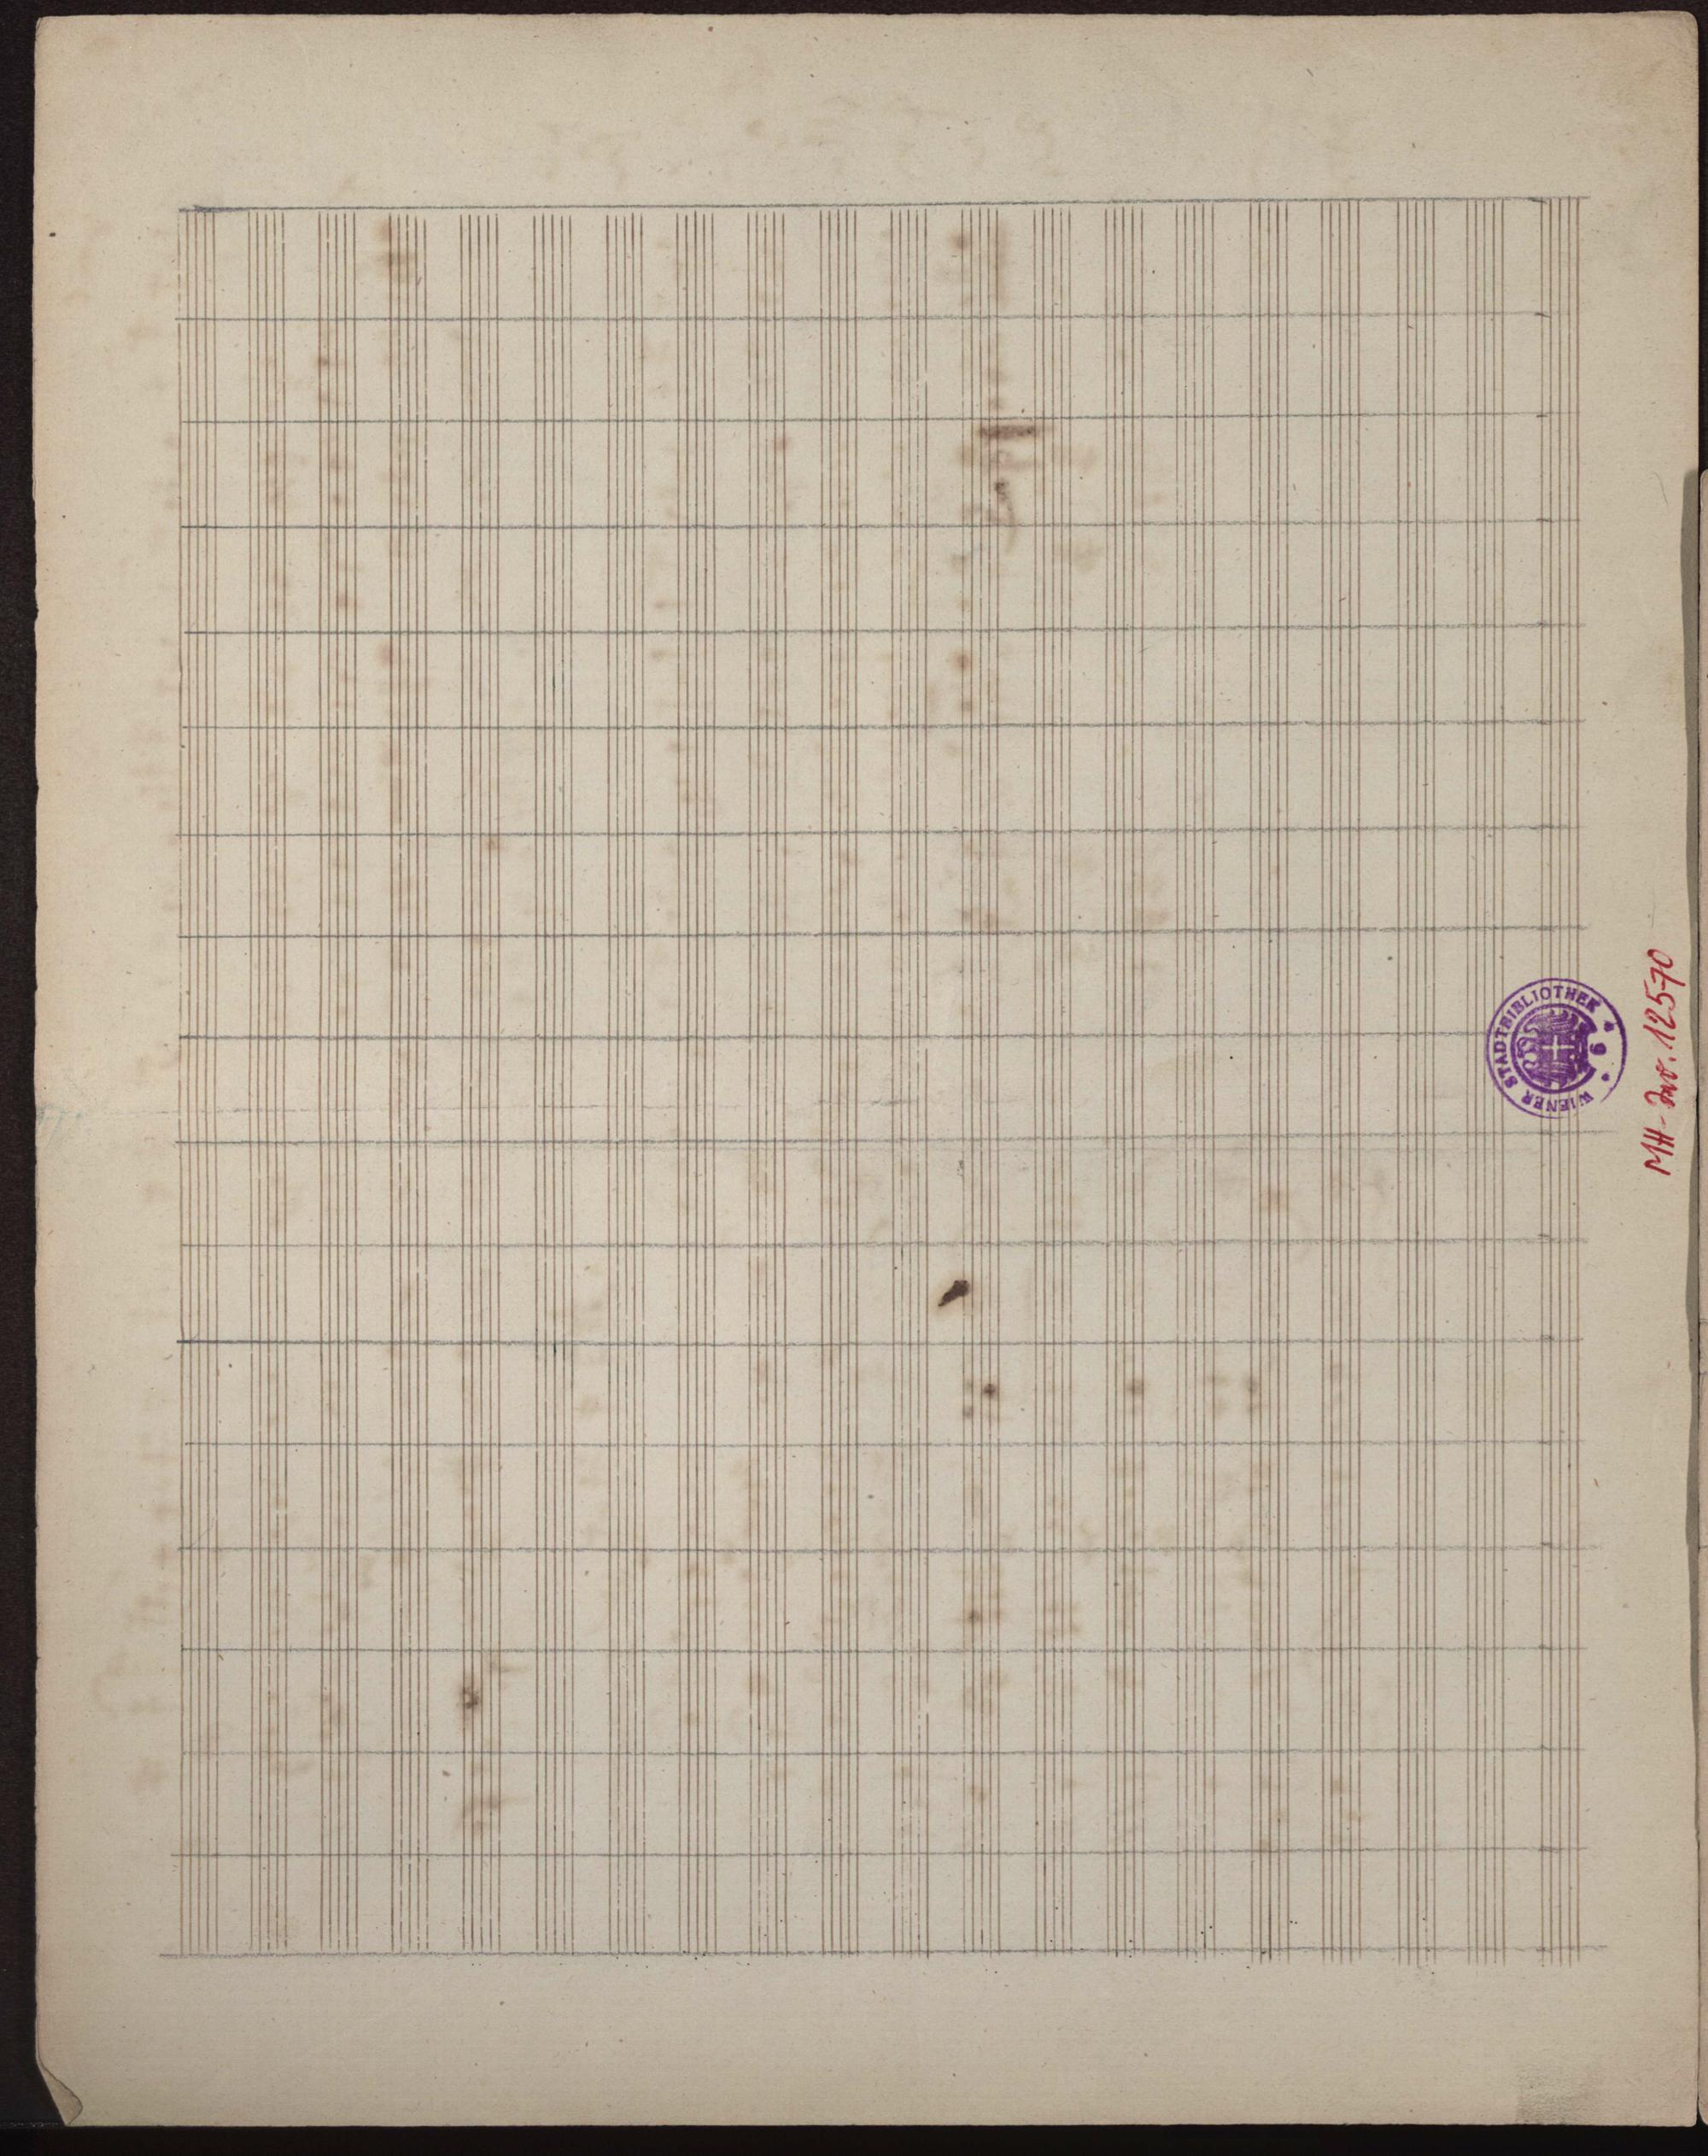 WIENER STADTBIBLIOTHEK
* 9 *
MH-Inv. 12570